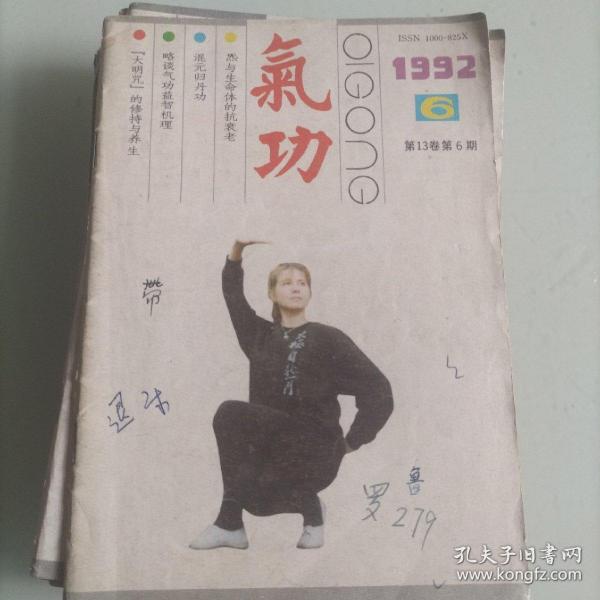 ISSN 1000-825X
1992
6
第13卷第6期
氣功
QIGONG
炁与生命体的抗衰老
混元归丹功
略谈气功益智机理
『大明咒』的修持与养生
带
罗
鲁
279
孔夫子旧书网
www.kongfz.com